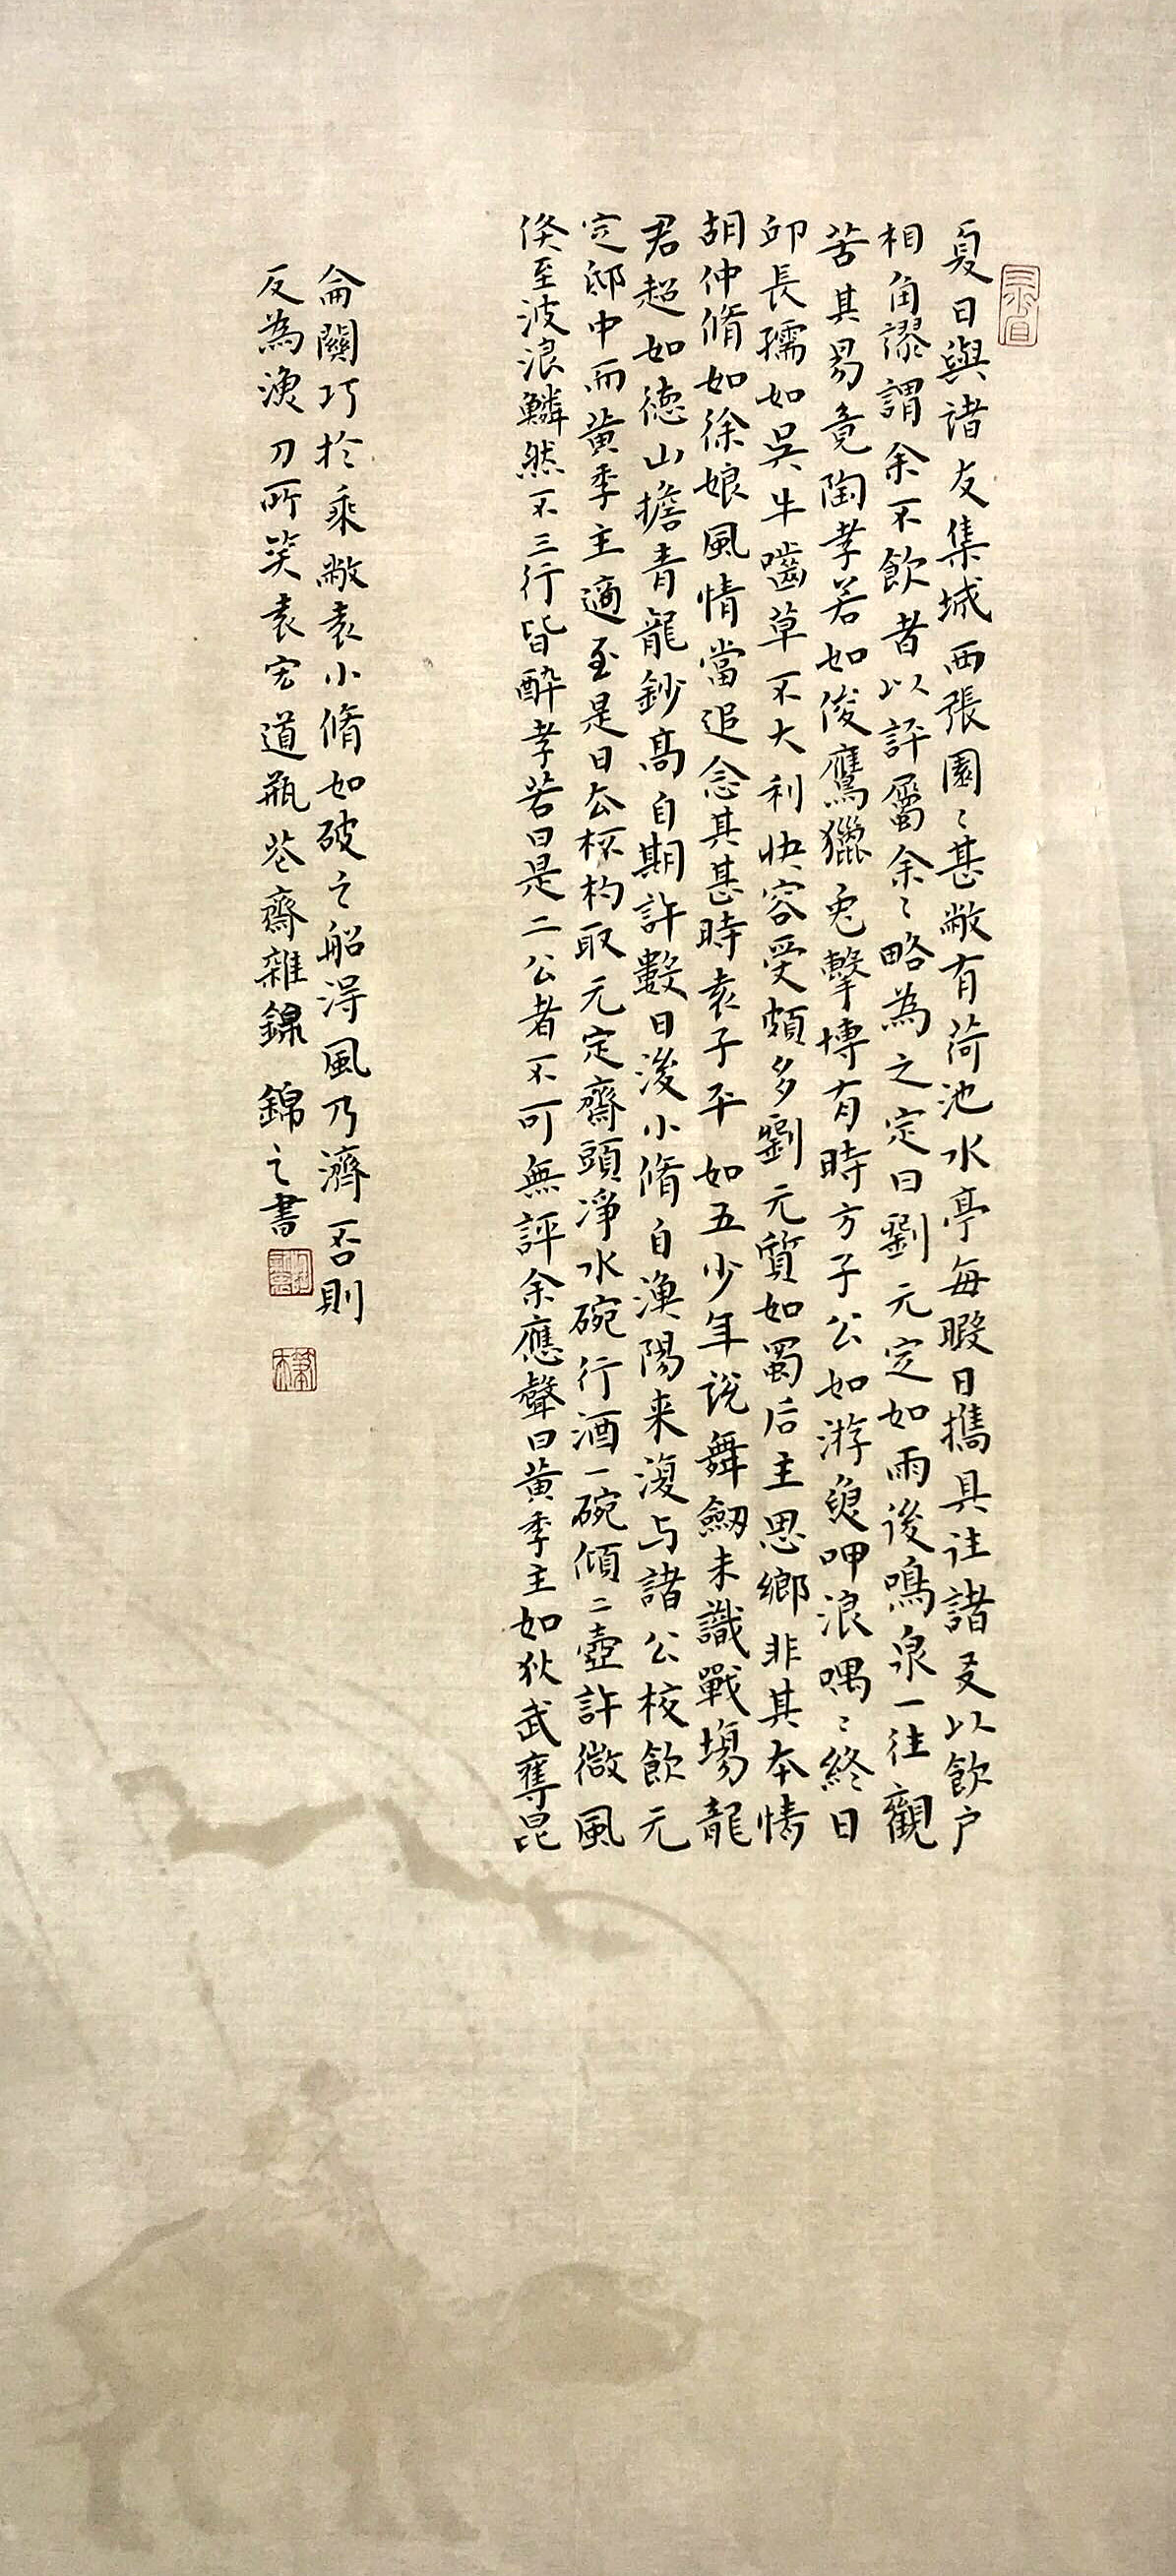 夏日與諸友集城西張園〻甚敞有荷池水亭每暇日攜具往諸友以飲户
相角謬謂余不飲者以評屬余〻略為之定曰劉元定如雨後鳴泉一往觀
苦其易竟陶孝若如俊鷹獵兔擊博有時方子公如游魚呷浪喁〻終日
邱長孺如吳牛嚙草不大利快容受頗多劉元質如蜀后主思鄉非其本情
胡仲脩如徐娘風情當追念其甚時袁子平如五少年說舞劒未識戰場龍
君超如德山擔青龍鈔高自期許數日後小脩自漁陽来復与諸公校飲元
定邸中而黄季主適至是日公杯杓取元定齋頭淨水碗行酒一碗傾二壺許微風
倏至波浪鱗然不三行皆醉孝若曰是二公者不可無評余應聲曰黄季主如狄武奪昆
侖關巧於乘敝袁小脩如破之船得風乃濟否則
反為漁刀所笑袁宏道瓶花齋雜錄 錦之書